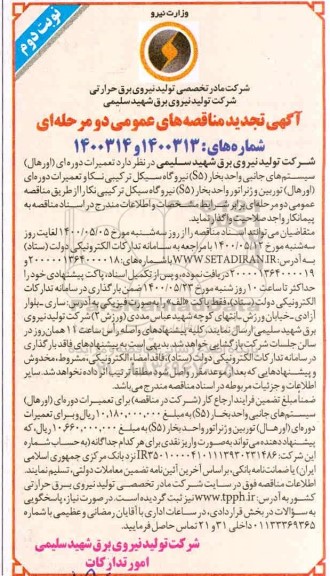 وزارت نیرو
نوبت دوم
شرکت مادر تخصصی تولید نیروی برق حرارتی
شرکت تولید نیروی برق شهید سلیمی
آگهی تجدید مناقصه‌های عمومی دو مرحله‌ای
شماره‌های: ۱۴۰۰۳۱۳ و ۱۴۰۰۳۱۴
شرکت تولید نیروی برق شهید سلیمی در نظر دارد تعمیرات دوره‌ای (اورهال)
سیستم‌های جانبی واحد بخار (S5) نیروگاه سیکل ترکیبی نکا و تعمیرات دوره‌ای
(اورهال) توربین و ژنراتور واحد بخار (S5) نیروگاه سیکل ترکیبی نکا را از طریق مناقصه
عمومی دو مرحله‌ای برابر شرایط، مشخصات و اطلاعات مندرج در اسناد مناقصه به
پیمانکار واجد صلاحیت واگذار نماید.
متقاضیان می‌توانند اسناد مناقصه را از روز سه‌شنبه مورخ ۱۴۰۰/۰۵/۰۵ لغایت روز
سه‌شنبه مورخ ۱۴۰۰/۰۵/۱۲ با مراجعه به سامانه تدارکات الکترونیکی دولت (ستاد)
به آدرس: WWW.SETADIRAN.IR با شماره‌های: ۲۰۰۰۰۰۱۳۶۴۰۰۰۰۱۸ و
۲۰۰۰۰۰۱۳۶۴۰۰۰۰۱۹ دریافت نموده، و پس از تکمیل اسناد، پاکت پیشنهادی خود را
حداکثر تا ساعت ۱۰ روز شنبه مورخ ۱۴۰۰/۰۵/۲۳ ضمن بارگذاری در سامانه تدارکات
الکترونیکی دولت (ستاد)، فقط پاکت «الف» را به صورت فیزیکی به آدرس: ساری ـ بلوار
آزادی ـ خیابان ورزش ـ انتهای کوچه شهید عباس مددی (ورزش ۲) شرکت تولید نیروی
برق شهید سلیمی ارسال نمایند. کلیه پیشنهادهای واصله رأس ساعت ۱۱ همان روز در
سالن جلسات شرکت بازگشایی خواهد شد. بدیهی است به پیشنهادهای فاقد بارگذاری
در سامانه تدارکات الکترونیکی دولت (ستاد)، فاقد امضاء الکترونیکی، مشروط، مخدوش
و پیشنهادهایی که بعد از موعد مقرر واصل شود مطلقاً ترتیب اثر داده نخواهد شد. سایر
اطلاعات و جزئیات مربوطه در اسناد مناقصه مندرج می‌باشد.
ضمناً مبلغ تضمین فرایند ارجاع کار (شرکت در مناقصه) برای تعمیرات دوره‌ای (اورهال)
سیستم‌های جانبی واحد بخار (S5) به مبلغ ۱۰,۱۸۰,۰۰۰,۰۰۰ ریال و برای تعمیرات
دوره‌ای (اورهال) توربین و ژنراتور واحد بخار (S5) به مبلغ ۱۰,۶۶۰,۰۰۰,۰۰۰ ریال که
پیشنهاد دهنده می‌تواند به صورت واریز نقدی برای هر کدام جداگانه (به حساب شماره
این شرکت: نزد بانک مرکزی جمهوری اسلامی
ایران) یا ضمانت‌نامه بانکی، براساس آخرین آئین‌نامه تضمین معاملات دولتی، تسلیم نمایند.
اطلاعات مناقصه فوق در سایت شرکت مادر تخصصی تولید نیروی برق حرارتی
کشور به آدرس: www.tpph.ir نیز ثبت گردیده است. در صورت نیاز، پاسخگویی
به سؤالات در بخش قراردادی، در ساعات اداری با آقایان رمضانی و عظیمی با شماره
۰۱۱۳۳۳۶۹۳۶۵ داخلی ۳۱ و ۲۱ تماس حاصل فرمایید.
شرکت تولید نیروی برق شهید سلیمی
امور تدارکات